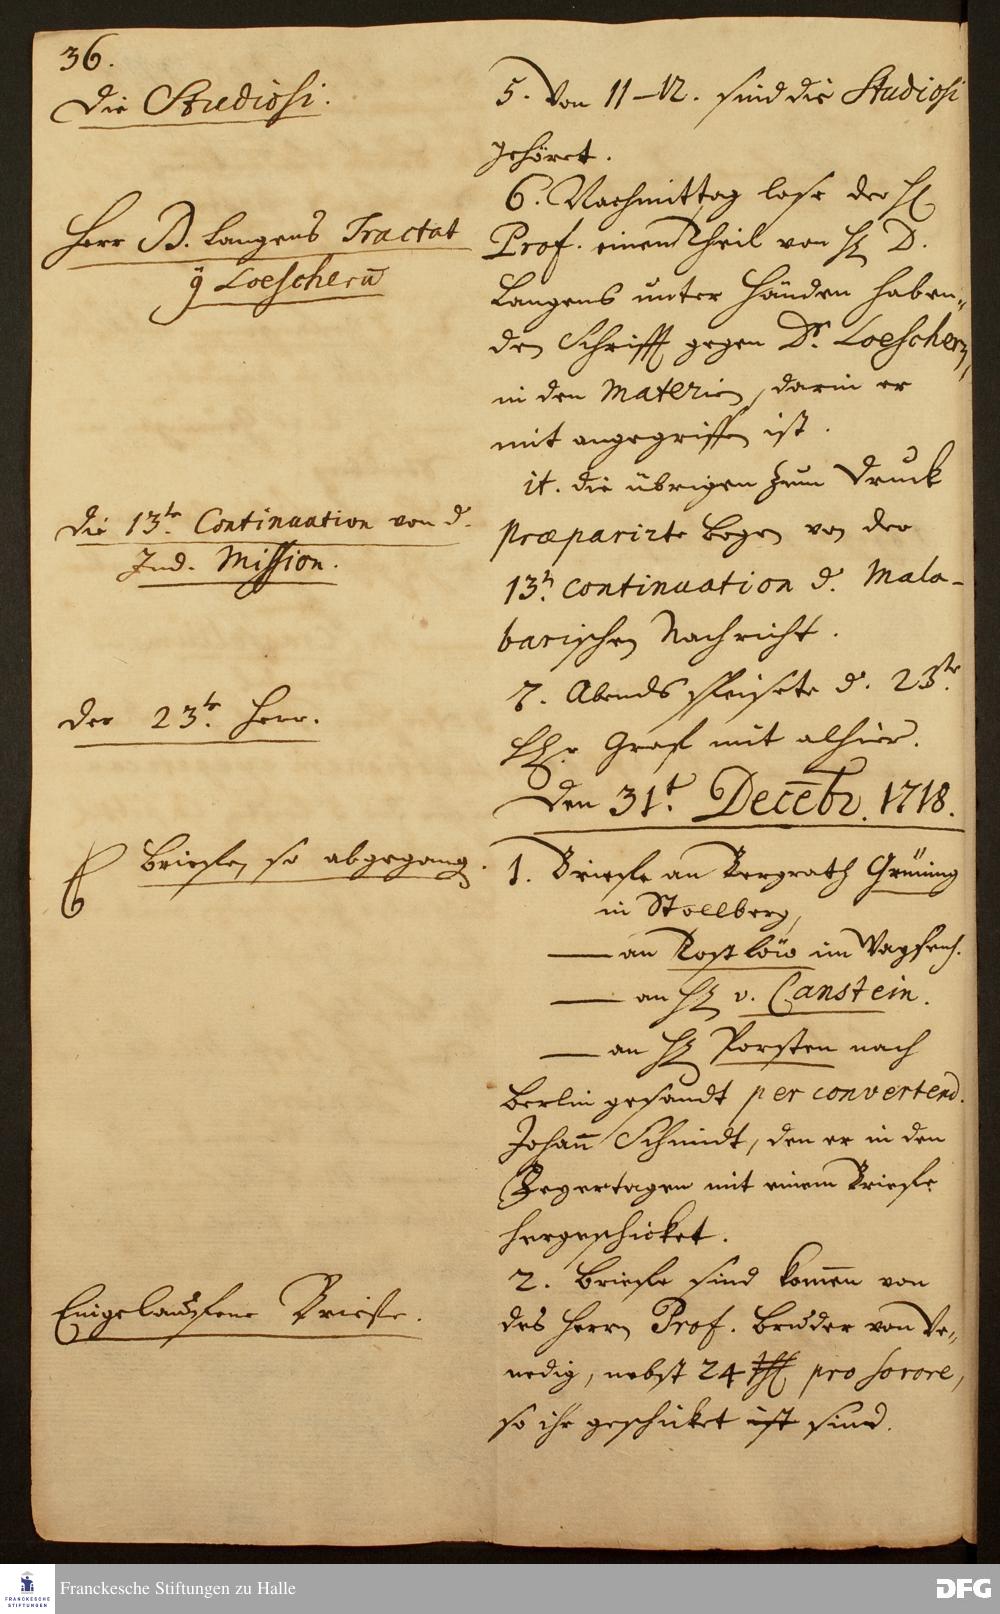 36.
Die Studiosi.
5. Von 11–12. sind die Studiosi
gehöret.
Herr D. Langens Tractat
g Loescherū
6. Nachmittag lase der H
Prof. einen Theil von H D.
Langens unter Händen haben„
den Schrifft gegen Dr. Loeschern,
in den Materien, darin er
mit angegriffen ist.
Die 13te Continuation von d.
Ind. Mission.
it. die übrigen zum Druck
præparirte Bogen von der
13t. continuation d. Mala-
barischen Nachricht.
der 23te Herr.
7. Abends speisete d. 23ste
H. Graf mit alhier.
Den 31t. Decēbr. 1718.
Briefe, so abgegang.
1. Briefe an Bergrath Grüning
in Stollberg,
— an Rostlöw im Waysenh.
— an H v. Canstein.
— an H Porsten nach
Berlin gesandt per convertend.
Johañ Schmidt, den er in den
Feyertagen mit einem Briefe
hergeschicket.
Eingelauffene Briefe.
2. Briefe sind kom̄en von
des Herrn Prof. Bruder von Ve„
nedig, nebst 24 thl pro sorore,
so ihr geschicket ist sind.
Franckesche Stiftungen zu Halle
FRANCKESCHE
STIFTUNGEN
DFG